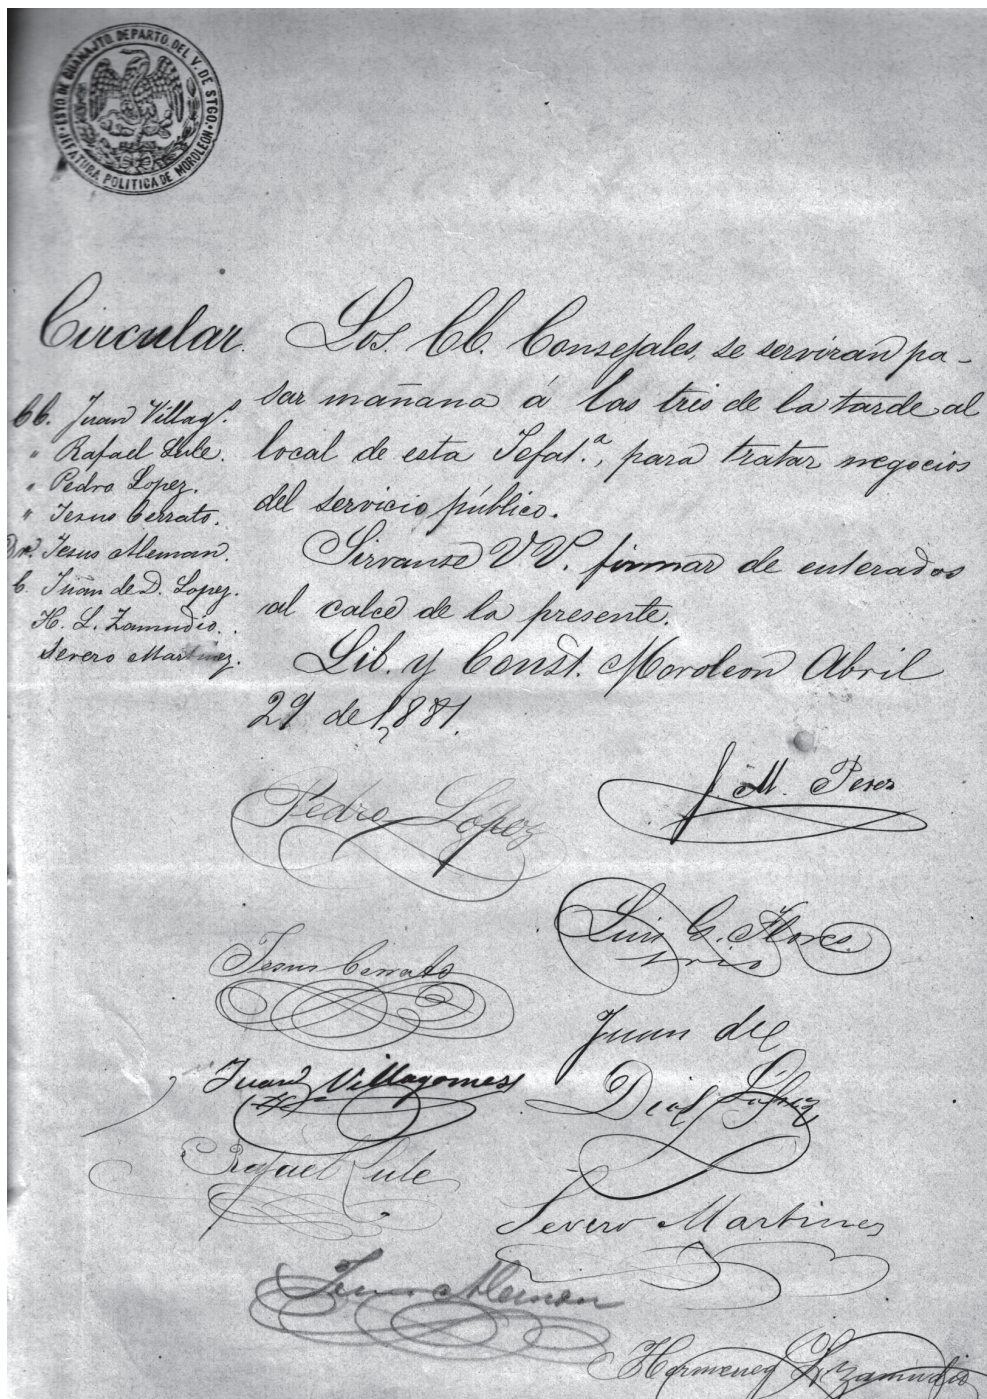 ESTO DE GUANAJTO. DEPARTO. DEL V. DE STGO.
JEFATURA POLITICA DE MOROLEON
Circular.
CC. Juan Villagˢ.
" Rafael Lule.
" Pedro Lopez.
" Jesus Cerrato.
Dr. Jesus Aleman.
C. Juan de D. Lopez.
H. L. Zamudio.
Severo Martinez.
Los. CC. Consejales, se serviran pa-
sar mañana á las tres de la tarde al
local de esta Jefatᵃ., para tratar negocios
del servicio público.
Sirvanse V.V. firmar de enterados
al calce de la presente.
Lib. y Const. Moroleon Abril
29 de 1,881.
J. M. Perez
Pedro López
Luis G. Flores
Srio
Jesus Cerrato
Juan de
Dios López
Juan Villagomes
Rafael Lule
Severo Martines
Jesus Aleman
Hermeneg L. Zamudio